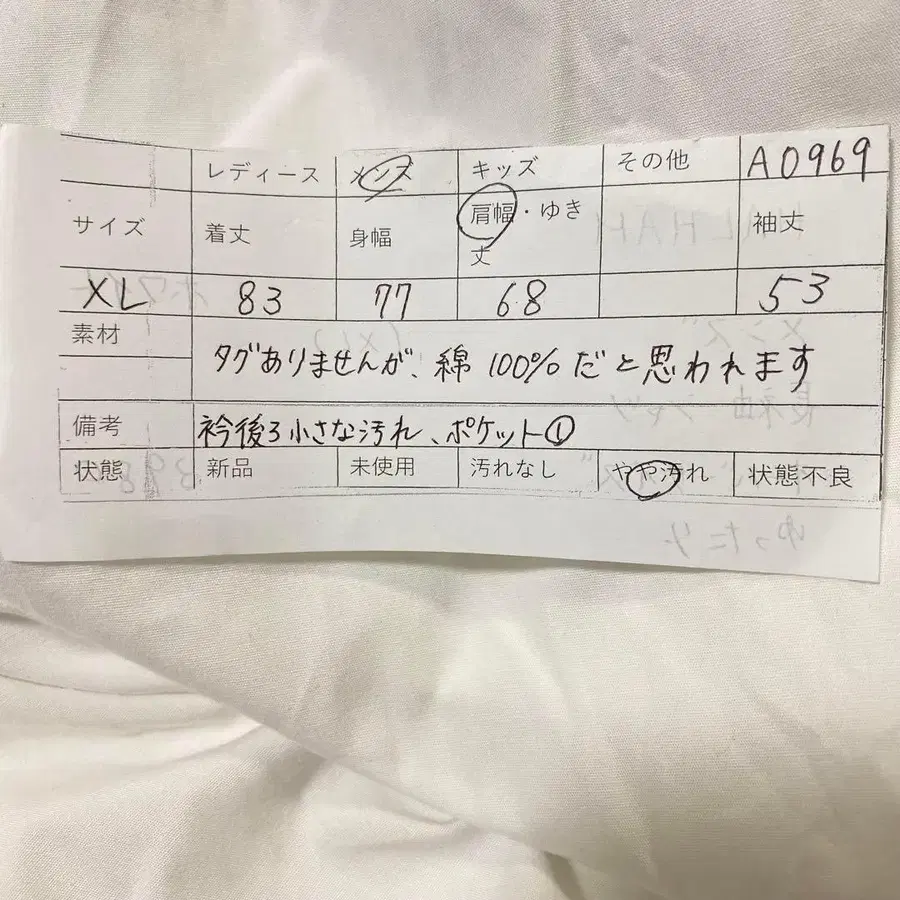 レディース メンズ キッズ その他 A0969
サイズ 着丈 身幅 肩幅・ゆき丈 袖丈
XL 83 77 68 53
素材 タグありませんが、綿 100%だと思われます
備考 衿後ろ小さな汚れ、ポケット①
状態 新品 未使用 汚れなし やや汚れ 状態不良
ゆったり